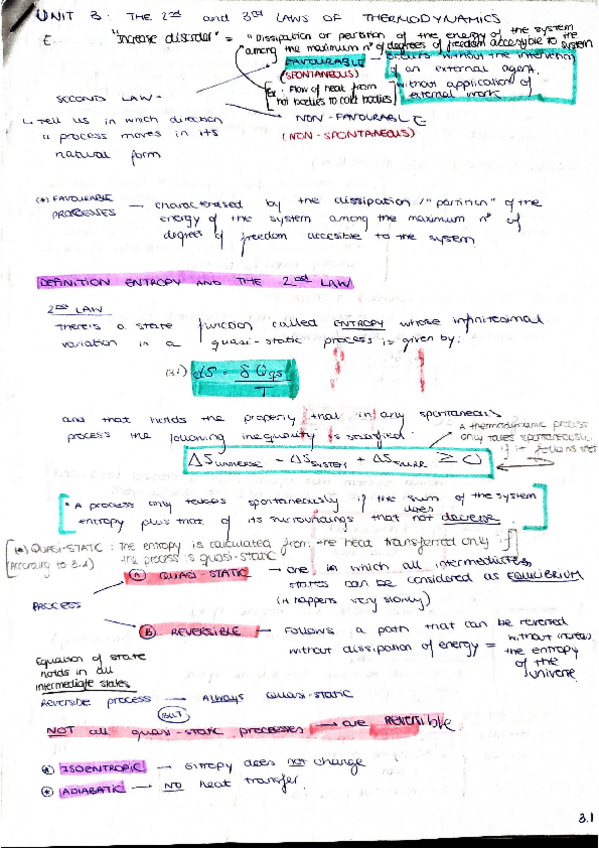 UNIT 3: THE 2nd and 3rd LAWS OF THERMODYNAMICS
"Increase disorder" = "Dissipation or partition of the energy of the system
among the maximum nº of degrees of freedom accessible to the system
FAVOURABLE → occurs without the intervention
(SPONTANEOUS) of an external agent,
Ex: Flow of heat from without application of
hot bodies to cold bodies external work
SECOND LAW
↳ Tell us in which direction NON-FAVOURABLE
a process moves in its (NON-SPONTANEOUS)
natural form
(*) FAVOURABLE PROCESSES → characterised by the dissipation /"partition" of the
energy of the system among the maximum nº of
degrees of freedom accesible to the system
DEFINITION ENTROPY AND THE 2nd LAW
2nd LAW
There's a state function called ENTROPY whose infinitesimal
variation in a quasi-static process is given by:
(3.1) dS = δQqs / T
and that holds the property that in any spontaneous
process the following inequality is satisfied
A thermodynamic process
only takes spontaneously
if it follows
ΔSUNIVERSE = ΔSSYSTEM + ΔSSURR ≥ 0
• A process only spontaneously if the sum of the system
entropy plus that of its surroundings that does not decrease
(*) QUASI-STATIC: The entropy is calculated from the heat transferred only if
(According to 3.1) the process is quasi-static
A QUASI-STATIC → one in which all intermediates
states can be considered as EQUILIBRIUM
(it happens very slowly)
PROCESS
B REVERSIBLE → Follows a path that can be reversed
without dissipation of energy = without increas
the entropy
of the
universe
Equation of state
holds in all
intermediate states
Reversible process → ALWAYS quasi-static
BUT
NOT all quasi-static processes → are REVERSIBLE
* ISOENTROPIC → Entropy does not change
* ADIABATIC → NO heat transfer
3.1